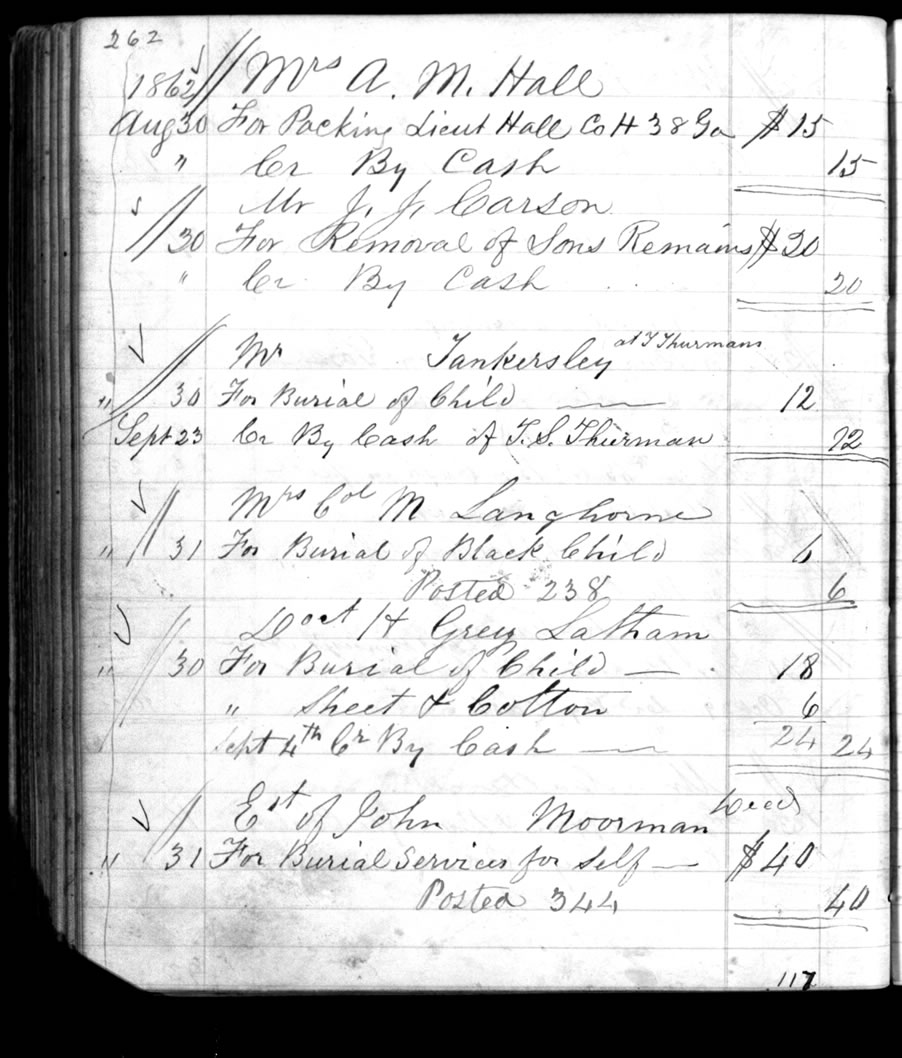 262
1862 Mrs A. M. Hall
Aug 30 For Packing Lieut Hall Co H 38 Ga $15
" Cr By Cash 15
Mr J. J. Carson
30 For Removal of Sons Remains $20
" Cr By Cash 20
Mr Tankersley at T Thurmans
" 30 For Burial of Child — 12
Sept 23 Cr By Cash of T. S. Thurman 12
Mrs Col M Langhorne
" 31 For Burial of Black Child 6
Posted 238 6
Doct H Grey Latham
" 30 For Burial of Child — 18
" Sheet & Cotton 6
24
Sept 4th Cr By Cash — 24
Est of John Moorman Decd
" 31 For Burial Services for Self — $40
Posted 344 40
117